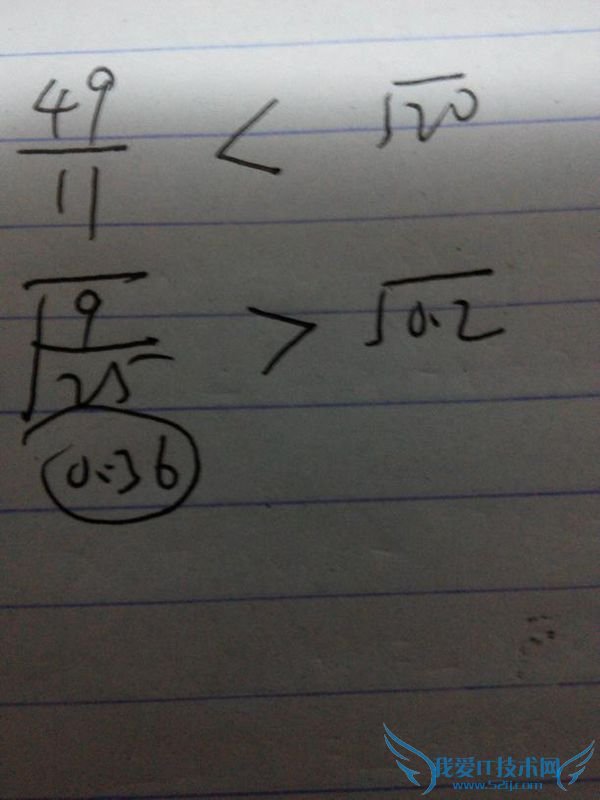 49/11 < √20
√(9/25) > √0.2
0.36
我爱IT技术网
www.52ij.com